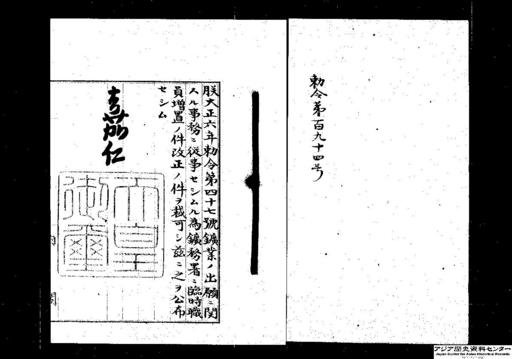 勅令第百九十四号
朕大正六年勅令第四十七號鑛業ノ出願ニ関
スル事務ニ従事セシムル為鑛務署ニ臨時職
員増置ノ件改正ノ件ヲ裁可シ茲ニ之ヲ公布
セシム
嘉仁
天皇
御璽
アジア歴史資料センター
Japan Center for Asian Historical Records